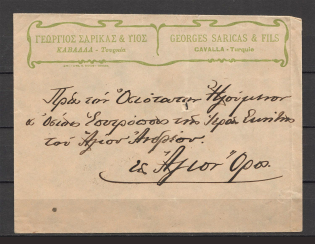 ΓΕΩΡΓΙΟΣ ΣΑΡΙΚΑΣ & ΥΙΟΣ
ΚΑΒΑΛΛΑ - Τουρκία
GEORGES SARICAS & FILS
CAVALLA - Turquie
Πρὸς τὸν Ὁσιώτατον Ἡγούμενον
τῆς Ἱερᾶς Σκήτης
τοῦ Ἁγίου Ἀνδρέου.
Ἅγιον Ὄρος